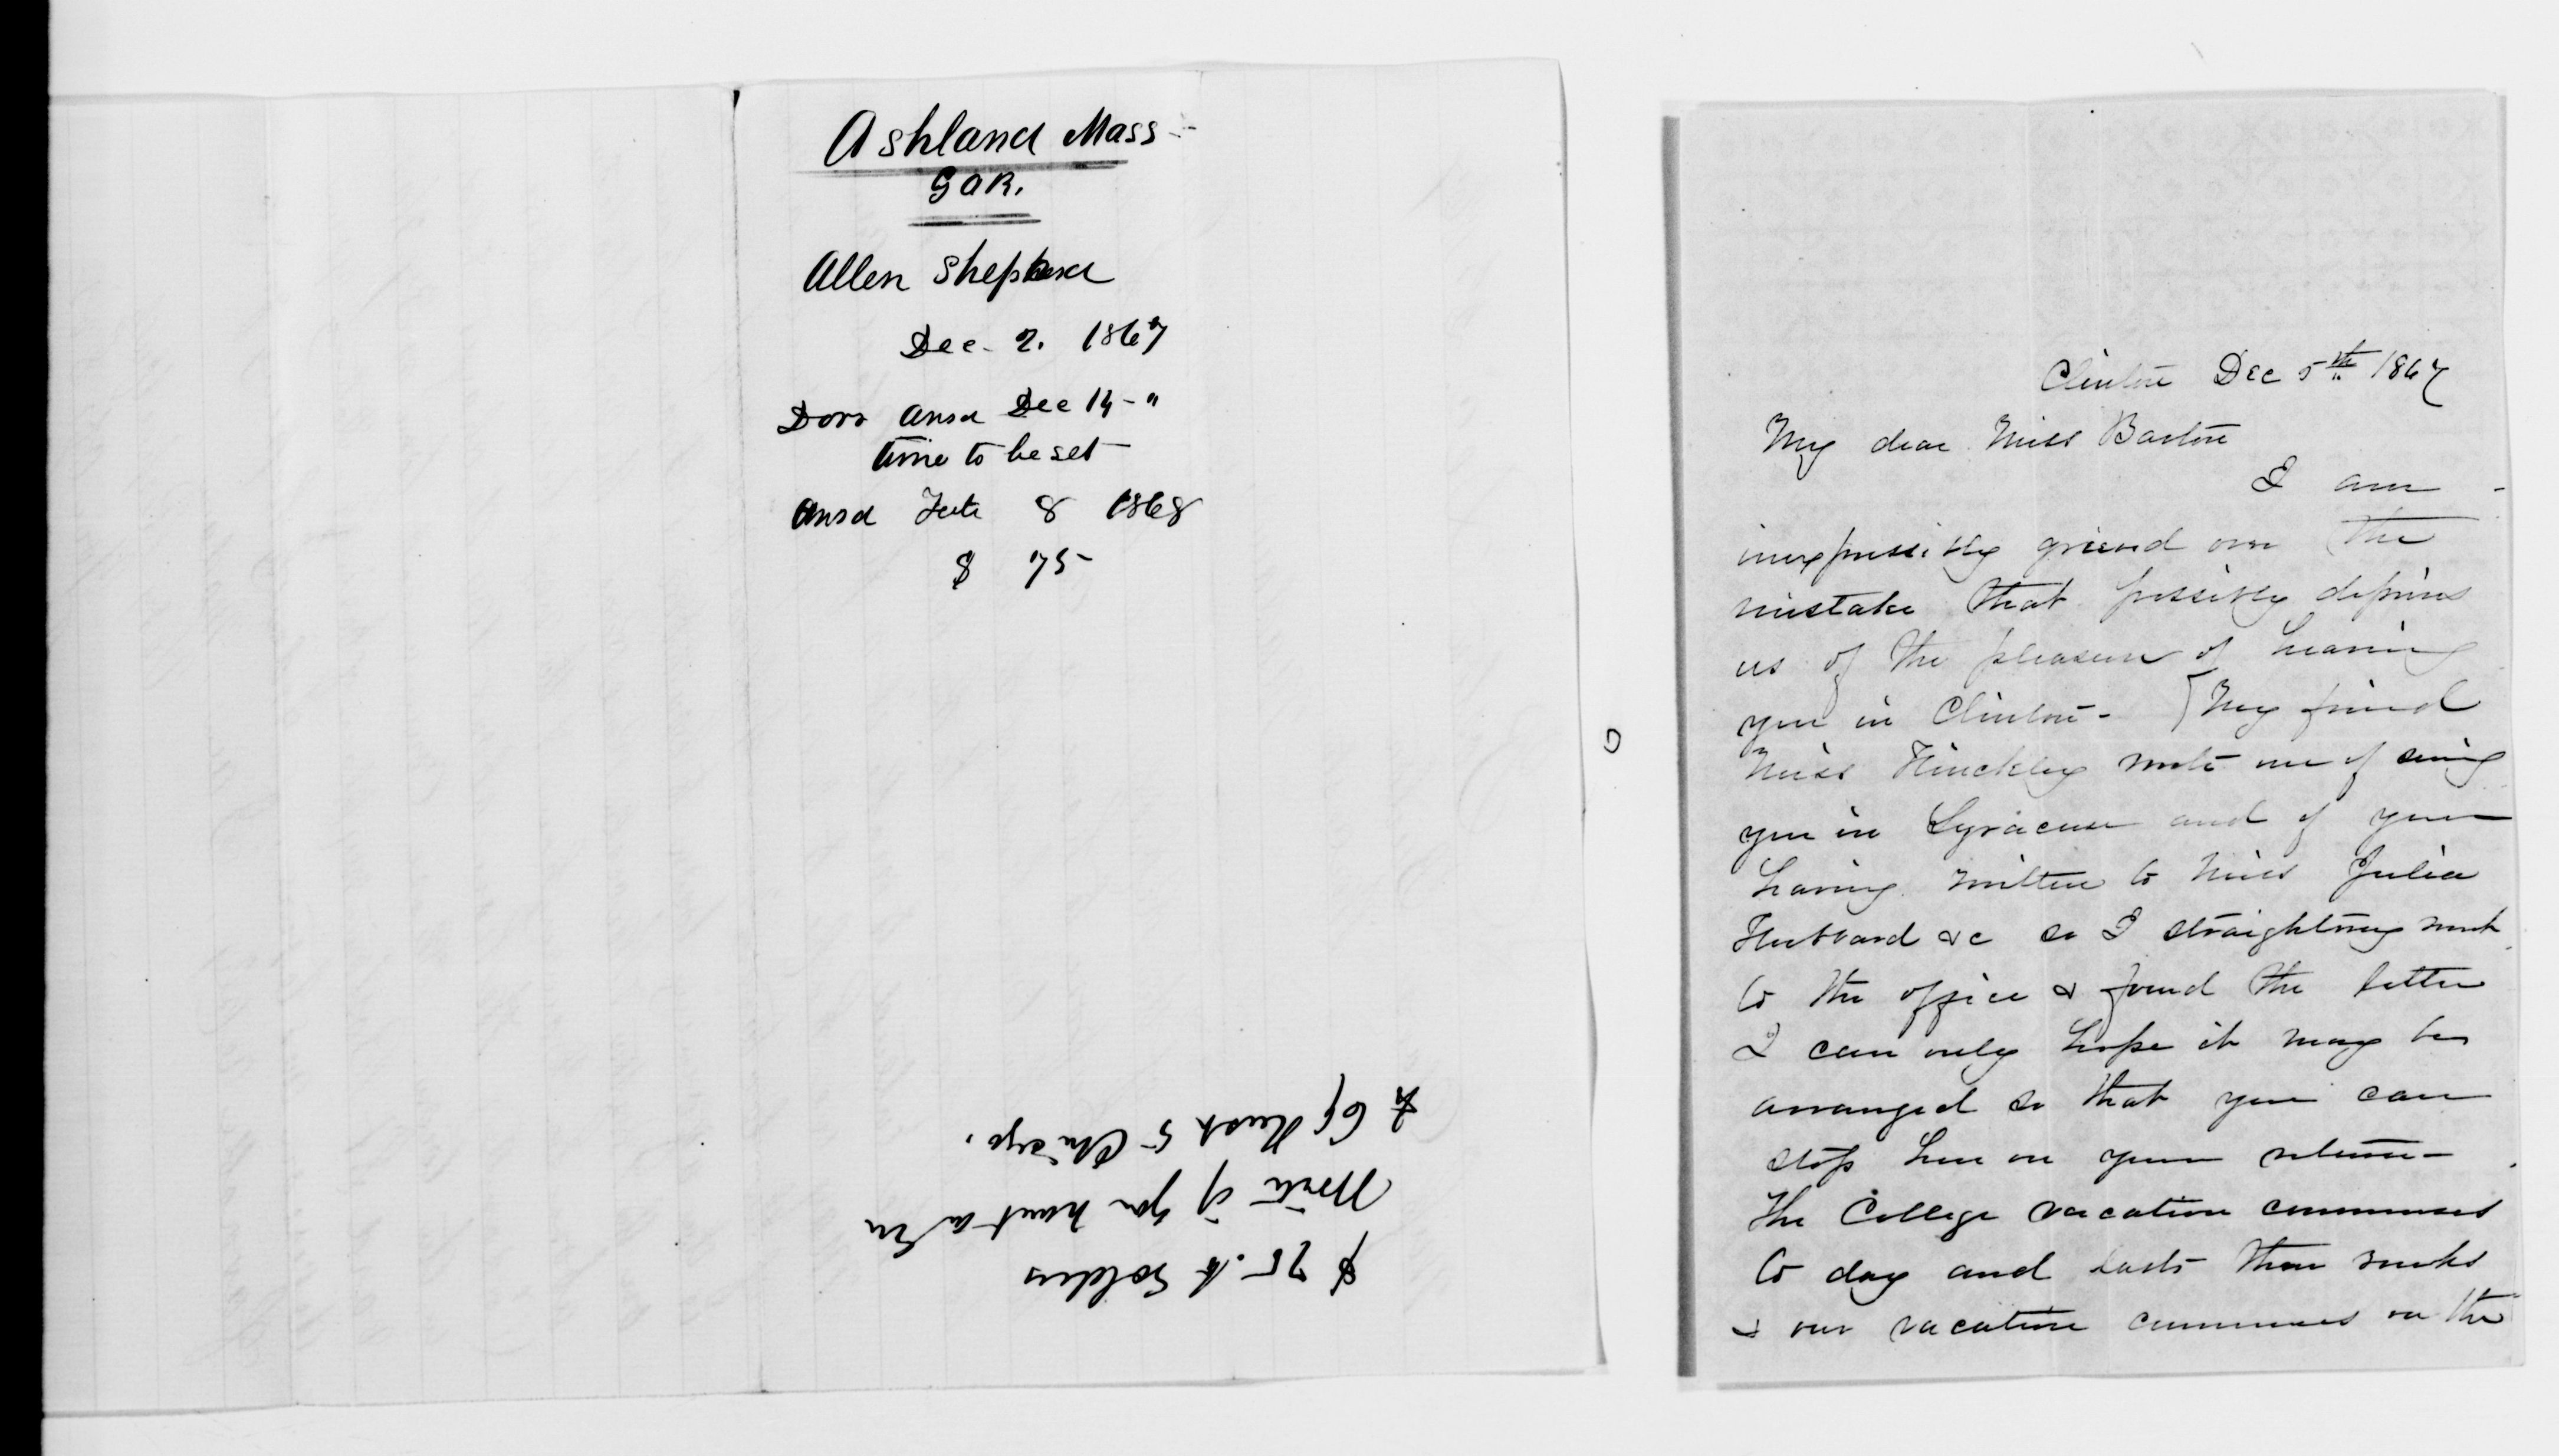 Ashland Mass -
GAR.
Allen Shepherd
Dec - 2. 1867
Dorr Ansd Dec 14 - "
time to be set -
Ansd Feb 8 1868
$ 75 -
$ 75. to Soldiers
Write if you want a
to 69 Rush St Chicago.
Clinton Dec 5th 1867
My dear Miss Barton
I am -
inexpressibly grieved over the
mistake that possibly deprives
us of the pleasure of hearing
you in Clinton - My friend
Miss Hinckley wrote me of seeing
you in Syracuse and of your
having written to Miss Julia
Hubbard &c so I straightway went
to the office & found the letter
I can only hope it may be
arranged so that you can
stop here on your return -
The College vacation commences
to day and lasts three weeks
& our vacation commences on the